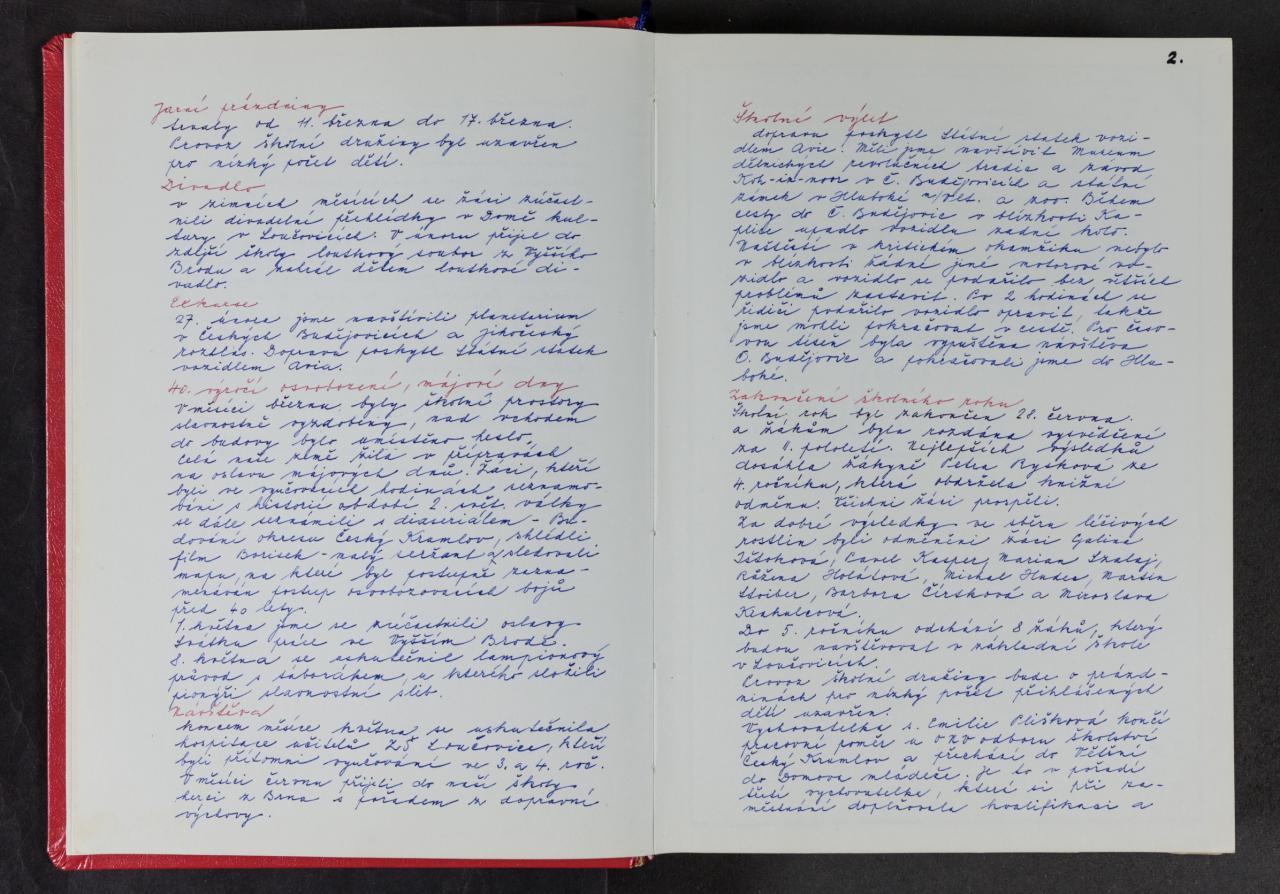 Jarní prázdniny
trvaly od 11. března do 17. března.
Provoz školní družiny byl uzavřen
pro nízký počet dětí.
Divadlo
v zimních měsících se žáci zúčast-
nili divadelní přehlídky v Domě kul-
tury v Loučovicích. V únoru přijel do
zdejší školy loutkový soubor z Vyššího
Brodu a zahrál dětem loutkové di-
vadlo.
Exkurse
27. února jsme navštívili planetarium
v Českých Budějovicích a jihočeský
rozhlas. Dopravu poskytl Státní statek
vozidlem Avia.
40. výročí osvobození, májové dny
V měsíci březnu byly školní prostory
slavnostně vyzdobeny, nad vchodem
do budovy bylo umístěno heslo.
Celá naše země žila v přípravách
na oslavu májových dnů. Žáci, kteří
byli ve vyučovacích hodinách seznamo-
váni s historií období 2. svět. války
se dále seznámili s diaseriálem - Bu-
dování okresu Český Krumlov, zhlédli
film Borisek - malý seržant a sledovali
mapu, na které byl postupně zazna-
menáván postup osvobozovacích bojů
před 40 lety.
1. května jsme se zúčastnili oslavy
Svátku práce ve Vyšším Brodě.
8. května se uskutečnil lampionový
průvod s táborákem, u kterého složili
pionýři slavnostní slib.
Návštěva
koncem měsíce května se uskutečnila
hospitace učitelů ZŠ Loučovice, kteří
byli přítomni vyučování ve 3. a 4. roč.
V měsíci červnu přijeli do naší školy
herci z Brna s pořadem z dopravní
výchovy.
2.
Školní výlet
dopravu poskytl Státní statek vozi-
dlem Avie. Měli jsme navštívit Museum
dělnických revolučních tradic a závod
Koh-in-noor v Č. Budějovicích a státní
zámek v Hluboké n/Vlt. a zoo. Během
cesty do Č. Budějovic v blízkosti Ka-
plice upadlo vozidlu zadní kolo.
Naštěstí v kritickém okamžiku nebylo
v blízkosti žádné jiné motorové vo-
zidlo a vozidlo se podařilo bez větších
problémů zastavit. Po 2 hodinách se
řidiči podařilo vozidlo opravit, takže
jsme mohli pokračovat v cestě. Pro časo-
vou tíseň byla vypuštěna návštěva
Č. Budějovic a pokračovali jsme do Hlu-
boké.
Zakončení školního roku
Školní rok byl zakončen 28. června
a žákům byla rozdána vysvědčení
za II. pololetí. Nejlepších výsledků
dosáhla žákyně Petra Ryšková ze
4. ročníku, která obdržela knižní
odměnu. Všichni žáci prospěli.
Za dobré výsledky ve sběru léčivých
rostlin byli odměněni žáci Galina
Ištoková, Pavel Kasper, Marian Szalaj,
Růžena Holátová, Michal Hudec, Martin
Stoiber, Barbora Čirtková a Miroslava
Do 5. ročníku odchází 8 žáků, který
budou navštěvovat v základní škole
v Loučovicích.
Provoz školní družiny bude o prázd-
ninách pro nízký počet přihlášených
dětí uzavřen.
Vychovatelka s. Emilie Plišková končí
pracovní poměr u ONV odboru školství
Český Krumlov a přechází do Větřní
do Domova mládeže. Je to v pořadí
třetí vychovatelka, která si při za-
městnání doplňovala kvalifikaci a